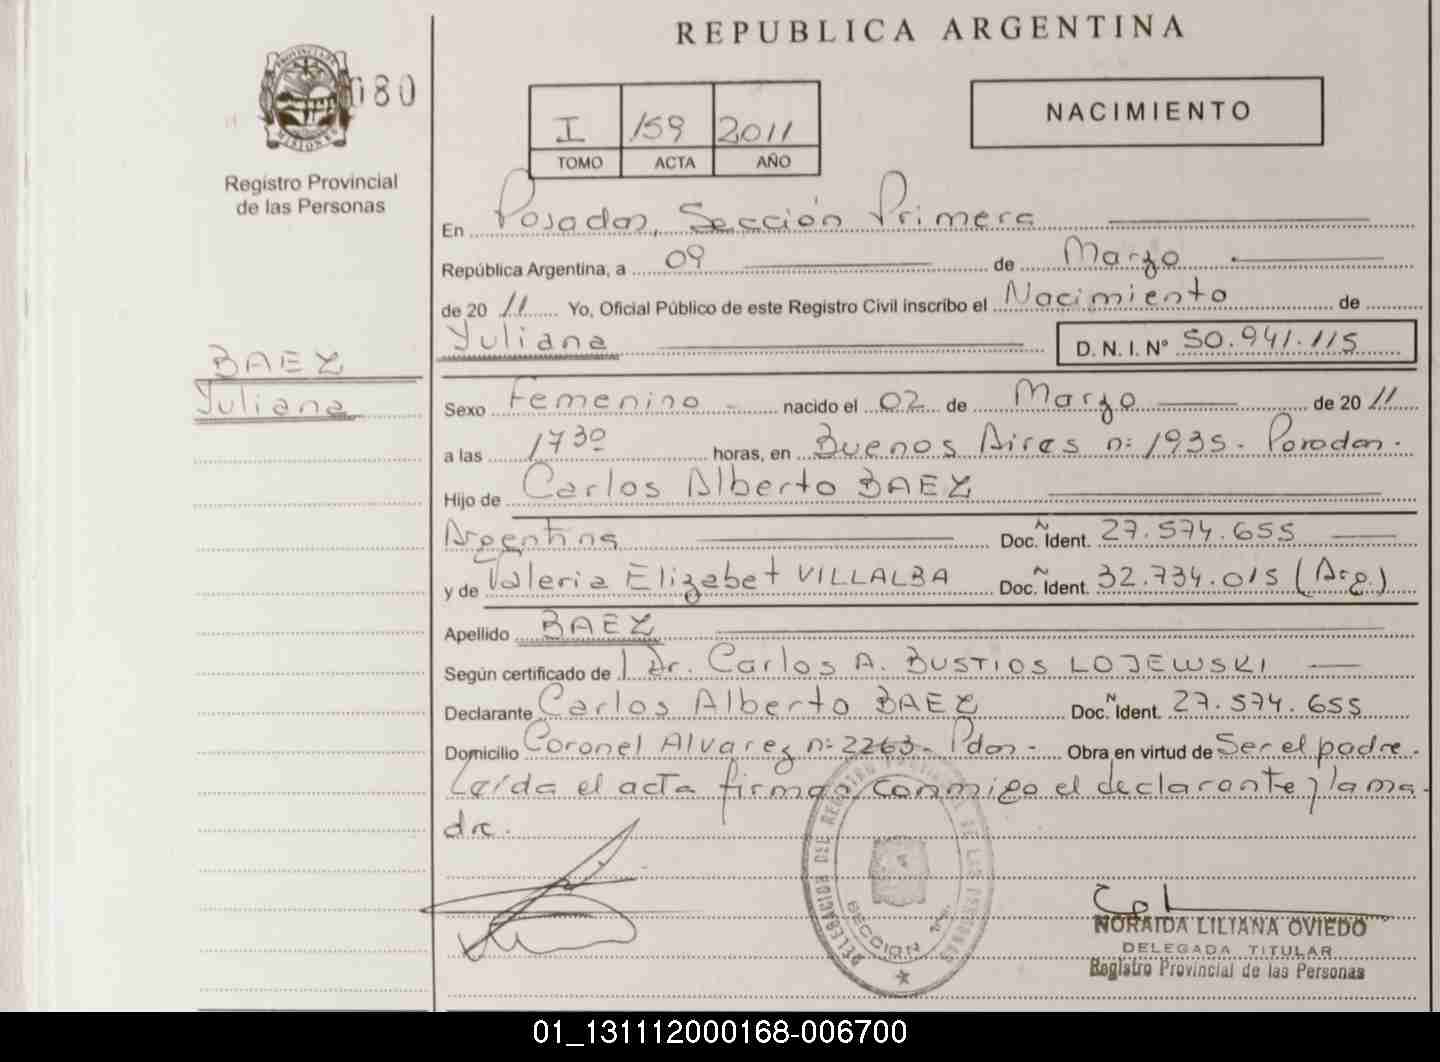 REPUBLICA ARGENTINA
PROVINCIA DE MISIONES
080
Registro Provincial
de las Personas
I 159 2011
TOMO ACTA AÑO
NACIMIENTO
En Posadas, Sección Primera
República Argentina, a 09 de Marzo
de 20 11 Yo, Oficial Público de este Registro Civil inscribo el Nacimiento de
Yuliana D. N. I. Nº 50.941.115
BAEZ
Yuliana
Sexo Femenino nacido el 02 de Marzo de 20 11
a las 1730 horas, en Buenos Aires nº 1935 - Posadas -
Hijo de Carlos Alberto BAEZ
Argentina Doc. Ñ Ident. 27.574.655
y de Valeria Elizabet VILLALBA Doc. Ñ Ident. 32.734.015 (Arg.)
Apellido BAEZ
Según certificado de Dr. Carlos A. BUSTIOS LOJEWSKI
Declarante Carlos Alberto BAEZ Doc. N Ident. 27.574.655
Domicilio Coronel Alvarez nº 2263 - Pdas - Obra en virtud de Ser el padre.
Leída el acta firman conmigo el declarante y la ma-
dre.
DELEGACION DEL REGISTRO PROVINCIAL DE LAS PERSONAS
SECCION 1ra.
NORAIDA LILIANA OVIEDO
DELEGADA TITULAR
Registro Provincial de las Personas
01_131112000168-006700